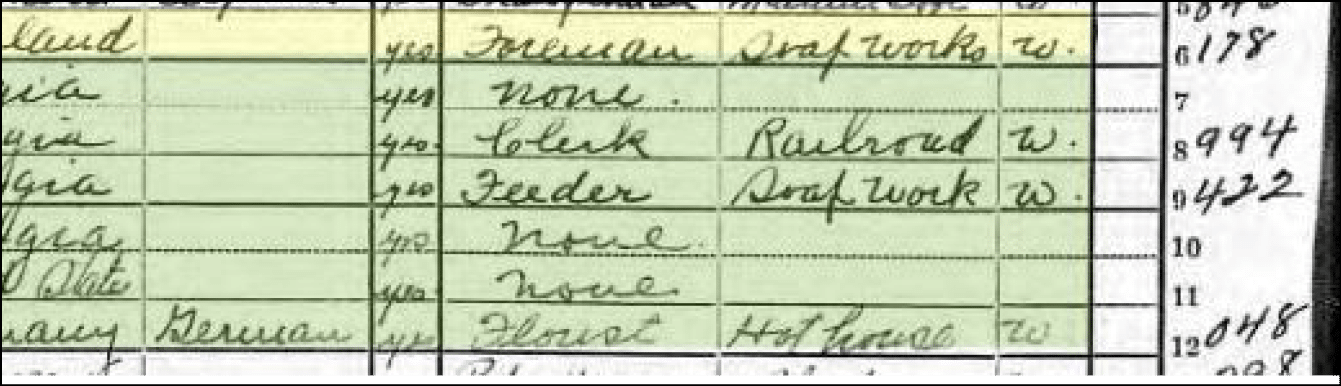 land yes Foreman Soap Works W. 6 178
gia yes none. 7
gia yes. Clerk Railroad W. 8 994
gia yes Feeder Soap Work W. 9 422
gia yes none. 10
State yes none 11
many German yes Florist Hot house W 12 048